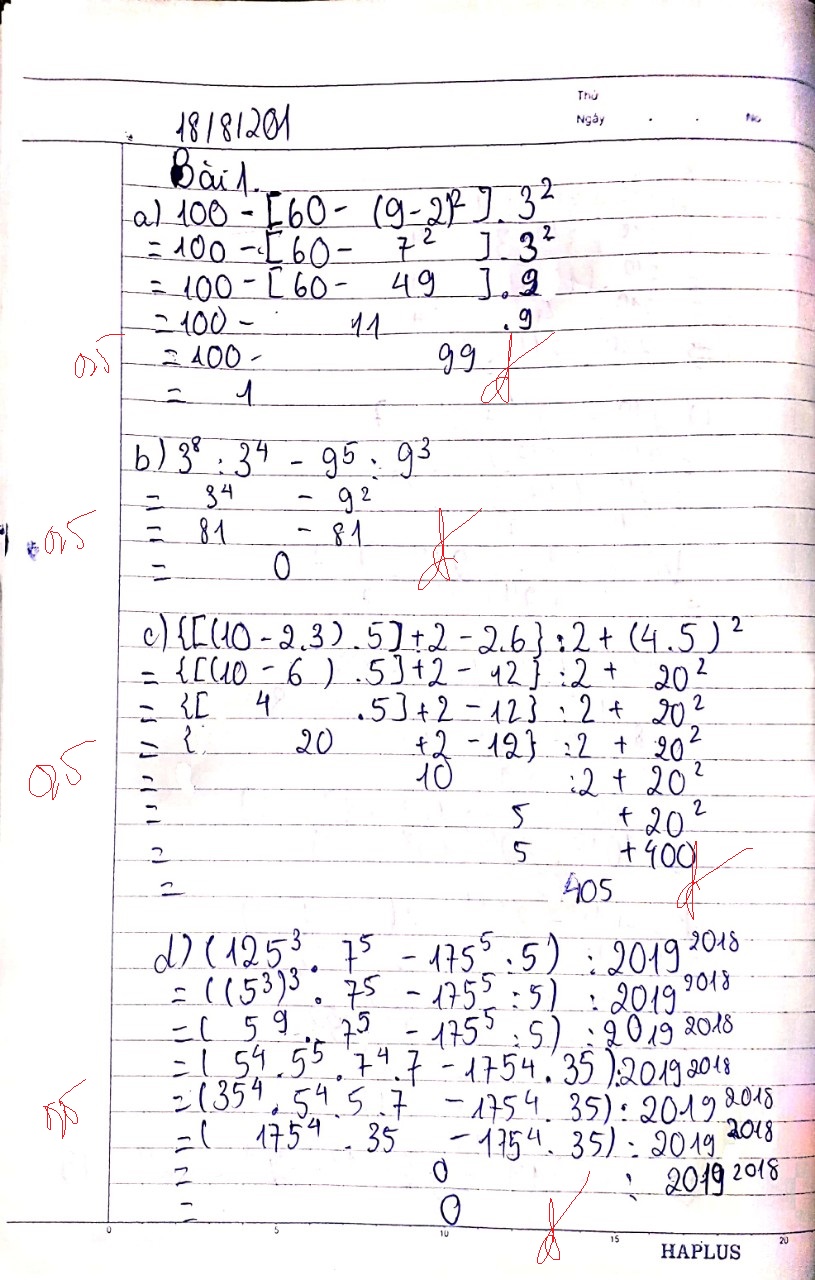 Thứ
Ngày . . No
18/8/201
Bài 1.
a) 100 - [60 - (9-2)²] . 3²
= 100 - [60 - 7² ] . 3²
= 100 - [60 - 49 ] . 9
= 100 - 11 . 9
0,5 = 100 - 99 đ
= 1
b) 3⁸ : 3⁴ - 9⁵ : 9³
= 3⁴ - 9²
0,5 = 81 - 81 đ
= 0
c) {[(10 - 2.3) . 5] + 2 - 2.6} : 2 + (4.5)²
= {[(10 - 6 ) . 5] + 2 - 12} : 2 + 20²
= {[ 4 . 5] + 2 - 12} : 2 + 20²
= { 20 + 2 - 12} : 2 + 20²
0,5 = 10 : 2 + 20²
= 5 + 20²
= 5 + 400
= 405 đ
d) (125³ . 7⁵ - 175⁵ : 5) : 2019²⁰¹⁸
= ((5³)³ . 7⁵ - 175⁵ : 5) : 2019²⁰¹⁸
= ( 5⁹ . 7⁵ - 175⁵ : 5) : 2019²⁰¹⁸
= ( 5⁴ . 5⁵ . 7⁴ . 7 - 175⁴ . 35 ) : 2019²⁰¹⁸
0,5 = (35⁴ . 5⁴ . 5 . 7 - 175⁴ . 35) : 2019²⁰¹⁸
= ( 175⁴ . 35 - 175⁴ . 35) : 2019²⁰¹⁸
= 0 : 2019²⁰¹⁸
= 0 đ
0 5 10 15 20
HAPLUS